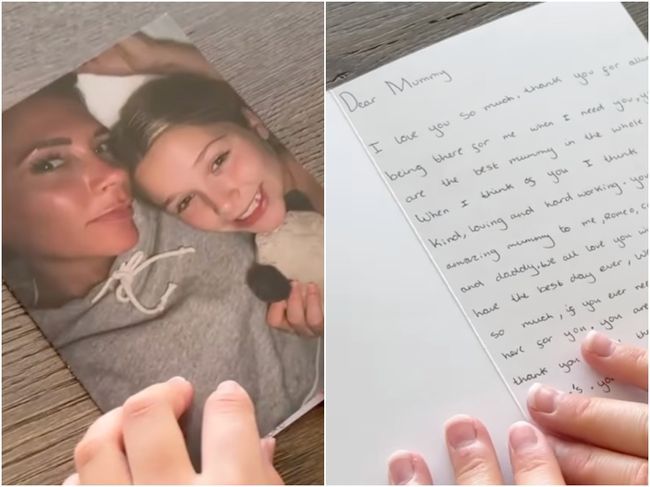 Dear Mummy
I love you so much. thank you for
being there for me when I need you,
are the best mummy in the whole
When I think of you I think
kind, loving and hard working.
amazing mummy to me, Romeo,
and daddy. We all love you
have the best day ever,
so much, if you ever
here for you. you are
thank you